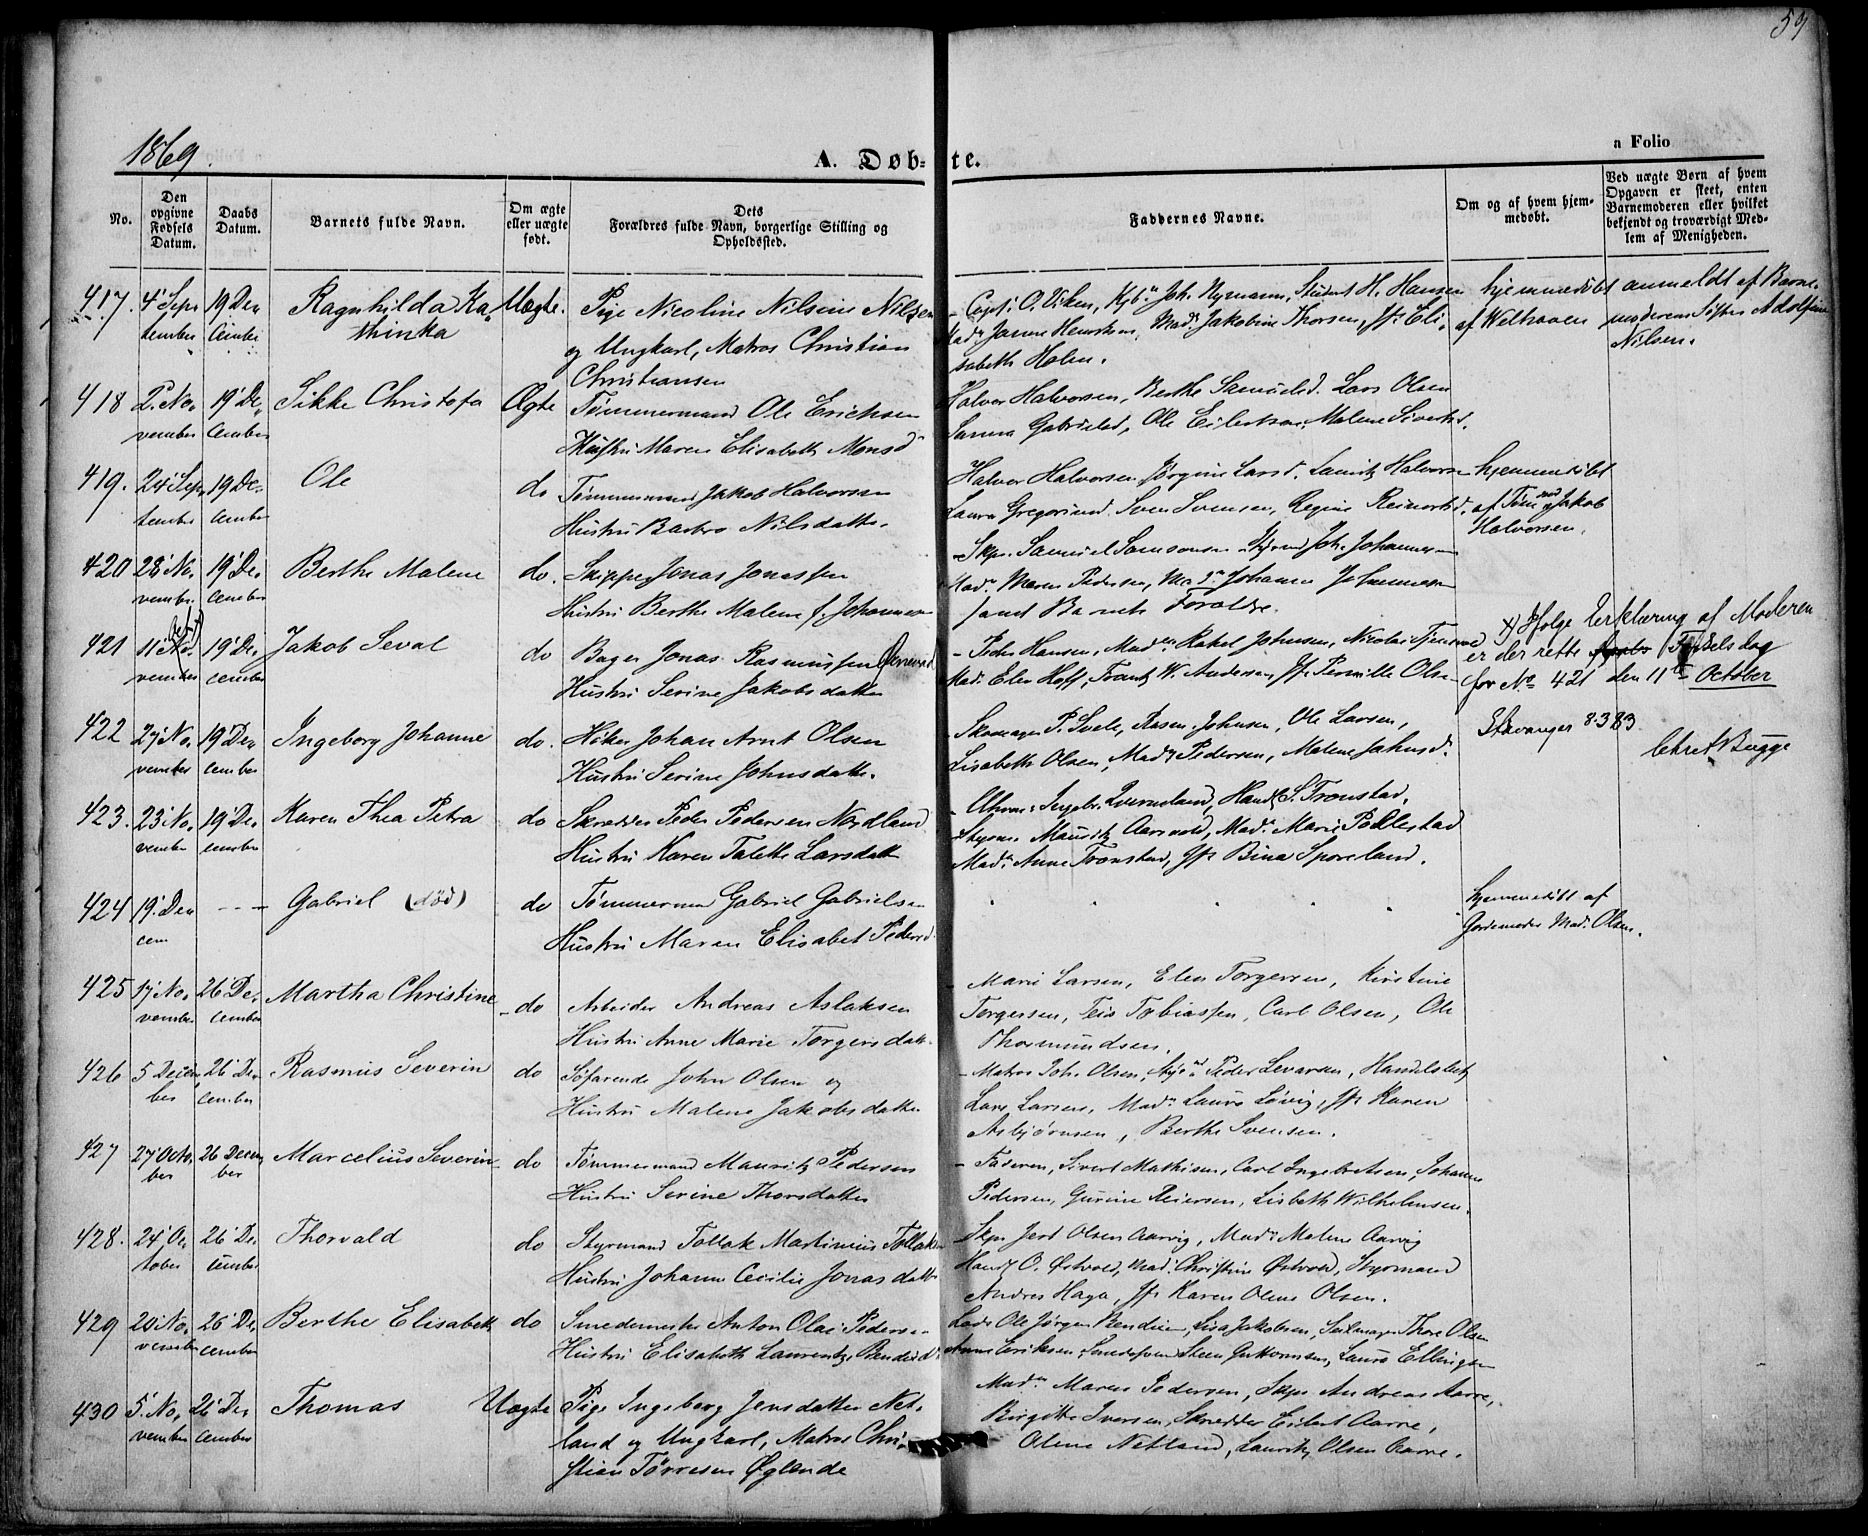 59
1869.
A. Døb-te.
a Folio
No.
Den opgivne Fødsels Datum.
Daabs Datum.
Barnets fulde Navn.
Om ægte eller uægte født.
Dets Forældres fulde Navn, borgerlige Stilling og Opholdssted.
Faddernes Navne.
Om og af hvem hjem-medøbt.
Ved uægte Børn af hvem Opgaven er skeet, enten Barnemoderen eller hvilket bekjendt og troværdigt Med-lem af Menigheden.
417. 4' Sep 19 De Ragnhilda Ka Uægte. Pige Nicoline Nilsine Nilsen
tember cember thinka og Ungkarl, Matros Christian
Christiansen
Capt: O. Viken, Joh. Nymann, Student H. Hansen
Mad. Janne Henriksen, Mad. Jakobine Thorsen, Jfr Eli,
sabeth Holm.
hjemmedøbt
af Welhaven
anmeldt af Barne,
moderens Søster Adolfine
Nilsen.
418 2. No, 19' De, Sikke Christofa Ægte Tømmermand Ole Erichsen
vember cember Hustru Maren Elisabeth Monsd
Halvor Halvorsen, Berthe Samueld. Lars Olsen
Sanna Gabrielsd, Ole Eilertsen, Malene Sivertsd.
419. 24' Sep 19 De, Ole do Tømmermand Jakob Halvorsen
tember cember Hustru Barbro Nilsdatter.
Halvor Halvorsen, Jørgine Larsd. Lauritz Halvorsen
Laura Gregoriusd. Sven Svensen, Regine Reinertsd.
hjemmedøbt
af Tøm Jakob
Halvorsen.
420 28' No, 19' De, Berthe Malene do. Skipper Jonas Jonassen
vember cember Hustru Berthe Malene f. Johannesen
Skpr. Samuel Samsonsen Styrm Joh. Johannesen
Mad. Maren Pedersen, Mad. Johanne Johannesen
samt Barnets Forældre.
421 11' No, 19' De, Jakob Seval do Bager Jonas Rasmussen
vember cember Hustru Serine Jakobsdatter
Peder Hansen, Mad. Rakel Johnsen, Nicolai
Mad. Elen Hoff, Frantz W. Andersen, Jfr Pernille Olsen
x) Ifølge Erklæring af Moderen
er der rette Fødselsdag
for No 421 den 11te October
Stavanger 8.3.83
Chret Bugge
422 27 No, 19' De Ingeborg Johanne do. Høker Johan Arnt Olsen
vember cember Hustru Serine Johnsdatter.
Skomager P. Svele, Rasm. Johnsen, Ole Larsen,
Lisabeth Olsen, Mad. Pedersen, Malene Johnsd.
423. 23' No, 19' De, Karen Thea Petra do Skrædder Peder Pedersen Nordland
vember cember Hustru Karen Talette Larsdatter
Ingebr. Qverneland, Handl. S. Tronstad,
Styrm. Mauritz Aarsvold, Mad. Marie Pollestad
Mad. Anne Tronstad, Jfr Bina Sporeland.
424 19' De --- Gabriel (død) do Tømmerman Gabriel Gabrielsen
cem Hustru Maren Elisabet Pedersd.
hjemmedøbt af
Gordemoder Mad. Olsen.
425 17' No, 26' De, Martha Christine do Arbeider Andreas Aslaksen
vember cember Hustru Anne Marie Torgersdatter
Marie Larsen, Elen Torgersen, Kirstine
Torgersen, Teis Tobiassen, Carl Olsen, Ole
Thormundsen.
426 5 Decem 26' De, Rasmus Severin do Søfarende John Olsen og
ber cember Hustru Malene Jakobsdatter
Matros Joh. Olsen, Peder Levarsen, Handelsbetj
Lars Larsen, Mad. Laura Løvig, Jfr Karen
Asbjørnsen, Berthe Svensen.
427 27 Octo, 26 Decem Marcelius Severin do Tømmermand Mauritz Pedersen
ber ber Hustru Serine Thorsdatter
Faderen, Sivert Mathisen, Carl Ingebretsen, Johanne
Pedersen, Gurine Reiersen, Lisbeth Wilhelmsen.
428. 24' Oc 26' De, Thorvald do Styrmand Tollak Martinius Tollaksen
tober cember Hustru Johanne Cecilie Jonasdatter
Skpr Jert Olsen Aarvig, Mad. Malene Aarvig
Handl O. Østvold, Mad. Christine Østvold, Styrmand
Andres Haga, Jfr Karen Oline Olsen.
429 20 No, 26' De, Berthe Elisabeth do Smedemester Anton Olai Pedersen
vember cember Hustru Elisabeth Laurentze Bendixd.
Lods Ole Jørgen Bendixen, Lisa Jakobsen, Seilmager Thore Olsen
Anne Eriksen, Smedesvend Steen Gutkormsen, Laura Ellingsen
430 5' No, 26' De, Thomas Uægte Pige Ingeborg Jensdatter Net,
vember cember land og Ungkarl, Matros Chri,
stian Tørresen Øglende
Mad. Maren Pedersen, Skpr Andreas Aarre,
Birgitte Iversen, Skrædder Eilert Aarre,
Olene Netland, Lauritz Olsen Aarre.